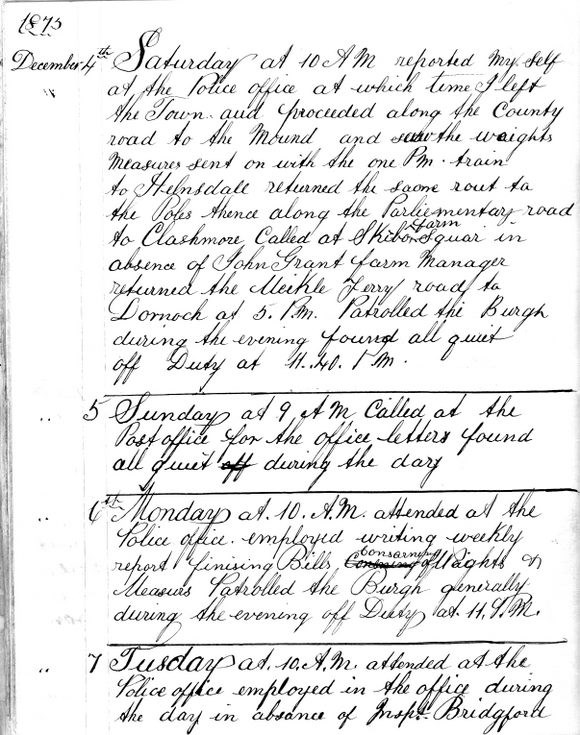 1875
December 4th Saturday at 10 A M reported My self
at the Police office at which time I left
the Town and proceeded along the County
road to the Mound and saw the weights
Measures sent on with the one P.m. train
to Helmsdale returned the same rout to
the Poles thence along the Parliementary road
to Clashmore Called at Skibo Farm Squar in
absence of John Grant farm Manager
returned the Meikle Ferry road to
Dornoch at 5. P.m. Patrolled the Burgh
during the evening found all quiet
off Duty at 11.40. P M.
" 5 Sunday at 9 A M Called at the
Post office for the office letters found
all quiet off during the day
" 6th Monday at 10. A.M. attended at the
Police office employed writing weekly
report finising Bills, Consarning of Waights &
Measurs Patrolled the Burgh generally
during the evening off Duty at 11. P.M.
" 7 Tusday at 10. A.M. attended at the
Police office employed in the office during
the day in absance of Inspr. Bridgford